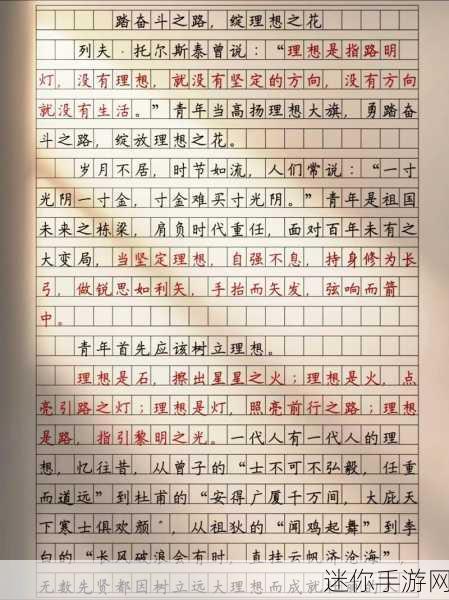 踏奋斗之路，绽理想之花
列夫·托尔斯泰曾说：“理想是指路明
灯，没有理想，就没有坚定的方向，没有方向
就没有生活。”青年当高扬理想大旗，勇踏奋
斗之路，绽放理想之花。
岁月不居，时节如流，人们常说：“一寸
光阴一寸金，寸金难买寸光阴。”青年是祖国
未来之栋梁，肩负时代重任，面对百年未有之
大变局，当坚定理想，自强不息，持身修为长
弓，做锐思如利矢，手抬而矢发，弦响而箭
中。
青年首先应该树立理想。
理想是石，擦出星星之火；理想是火，点
亮引路之灯；理想是灯，照亮前行之路；理想
是路，指引黎明之光。一代人有一代人的理
想，忆往昔，从曾子的“士不可不弘毅，任重
而道远”到杜甫的“安得广厦千万间，大庇天
下寒士俱欢颜”，从祖狄的“闻鸡起舞”到李
白的“长风破浪会有时，直挂云帆济沧海”
无数先贤都因树立远大理想而成就
迷你手游网